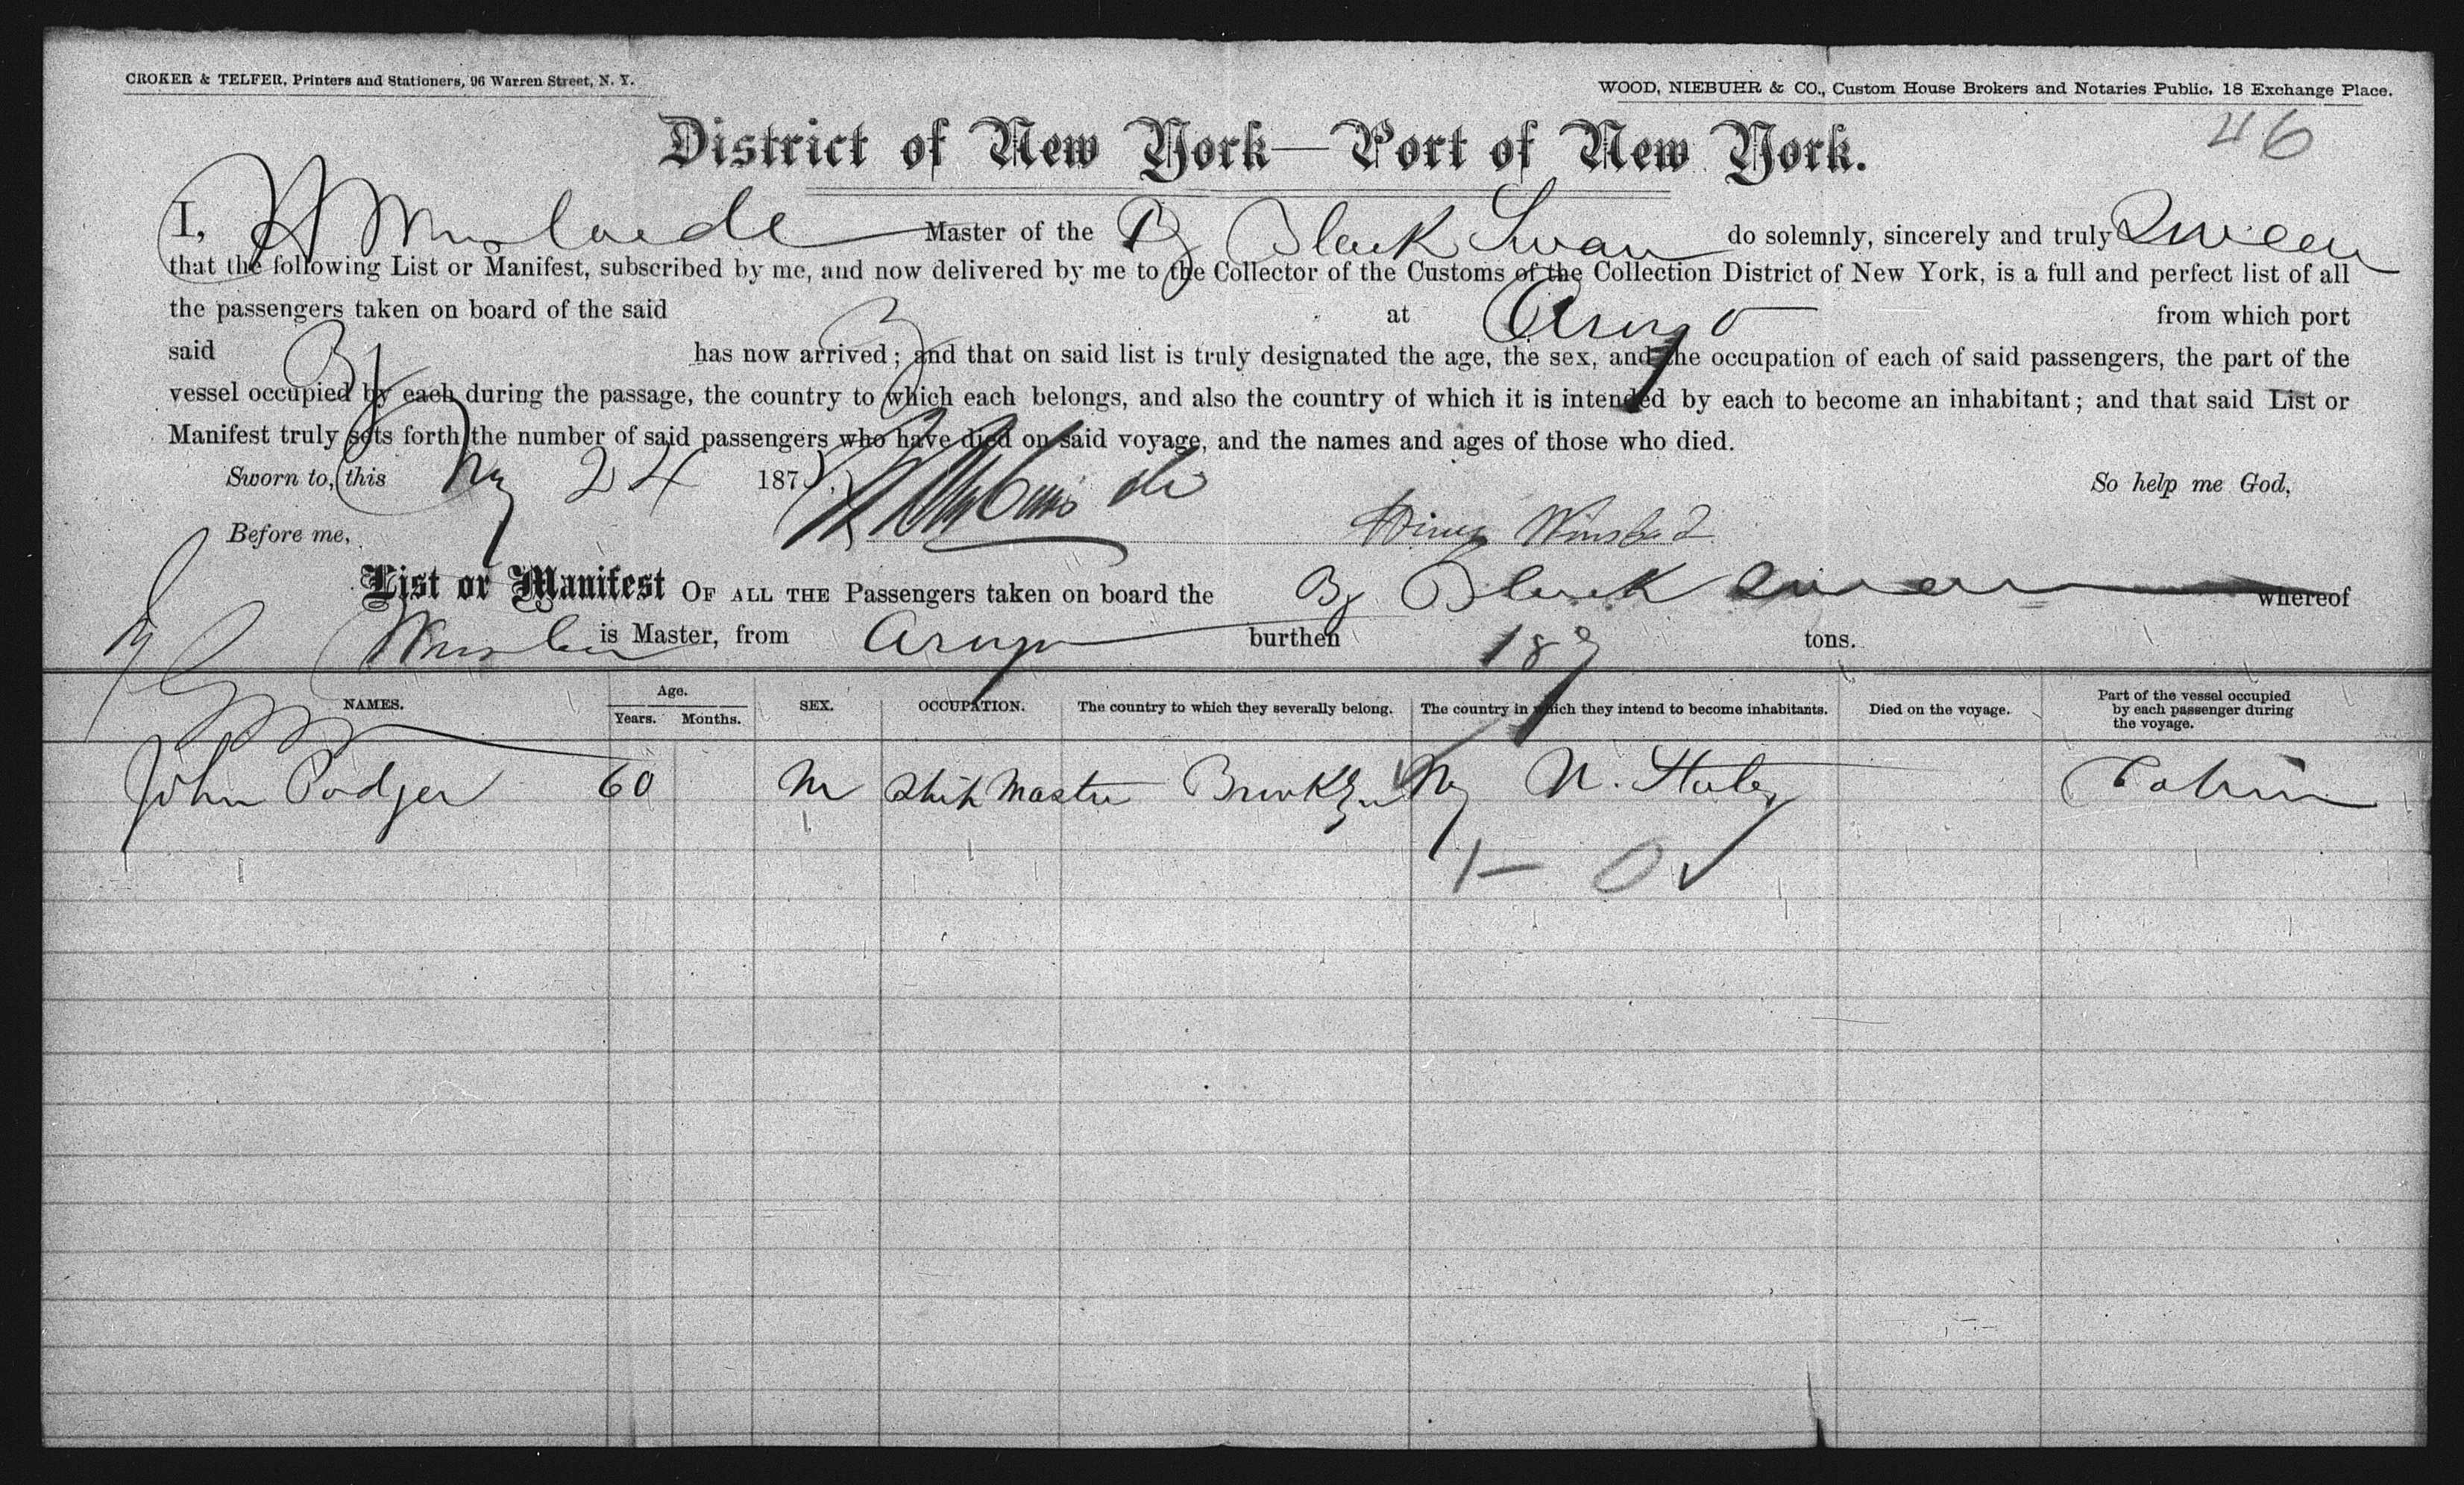 CROKER & TELFER, Printers and Stationers, 96 Warren Street, N. Y.
WOOD, NIEBUHR & CO., Custom House Brokers and Notaries Public, 18 Exchange Place.
46
District of New York—Port of New York.
I, Master of the Bg Black Swan do solemnly, sincerely and truly Swear
that the following List or Manifest, subscribed by me, and now delivered by me to the Collector of the Customs of the Collection District of New York, is a full and perfect list of all
the passengers taken on board of the said Bg at Aroyo from which port
said Bg has now arrived; and that on said list is truly designated the age, the sex, and the occupation of each of said passengers, the part of the
vessel occupied by each during the passage, the country to which each belongs, and also the country of which it is intended by each to become an inhabitant; and that said List or
Manifest truly sets forth the number of said passengers who have died on said voyage, and the names and ages of those who died.
Sworn to, this 24 187 So help me God,
Before me,
List or Manifest OF ALL THE Passengers taken on board the Bg Black Swan whereof
is Master, from Aroyo burthen 189 tons.
NAMES. Age. Years. Months. SEX. OCCUPATION. The country to which they severally belong. The country in which they intend to become inhabitants. Died on the voyage. Part of the vessel occupied by each passenger during the voyage.
John Podger 60 M Ship Master Brooklyn Ny U. States Cabin
1 — 0